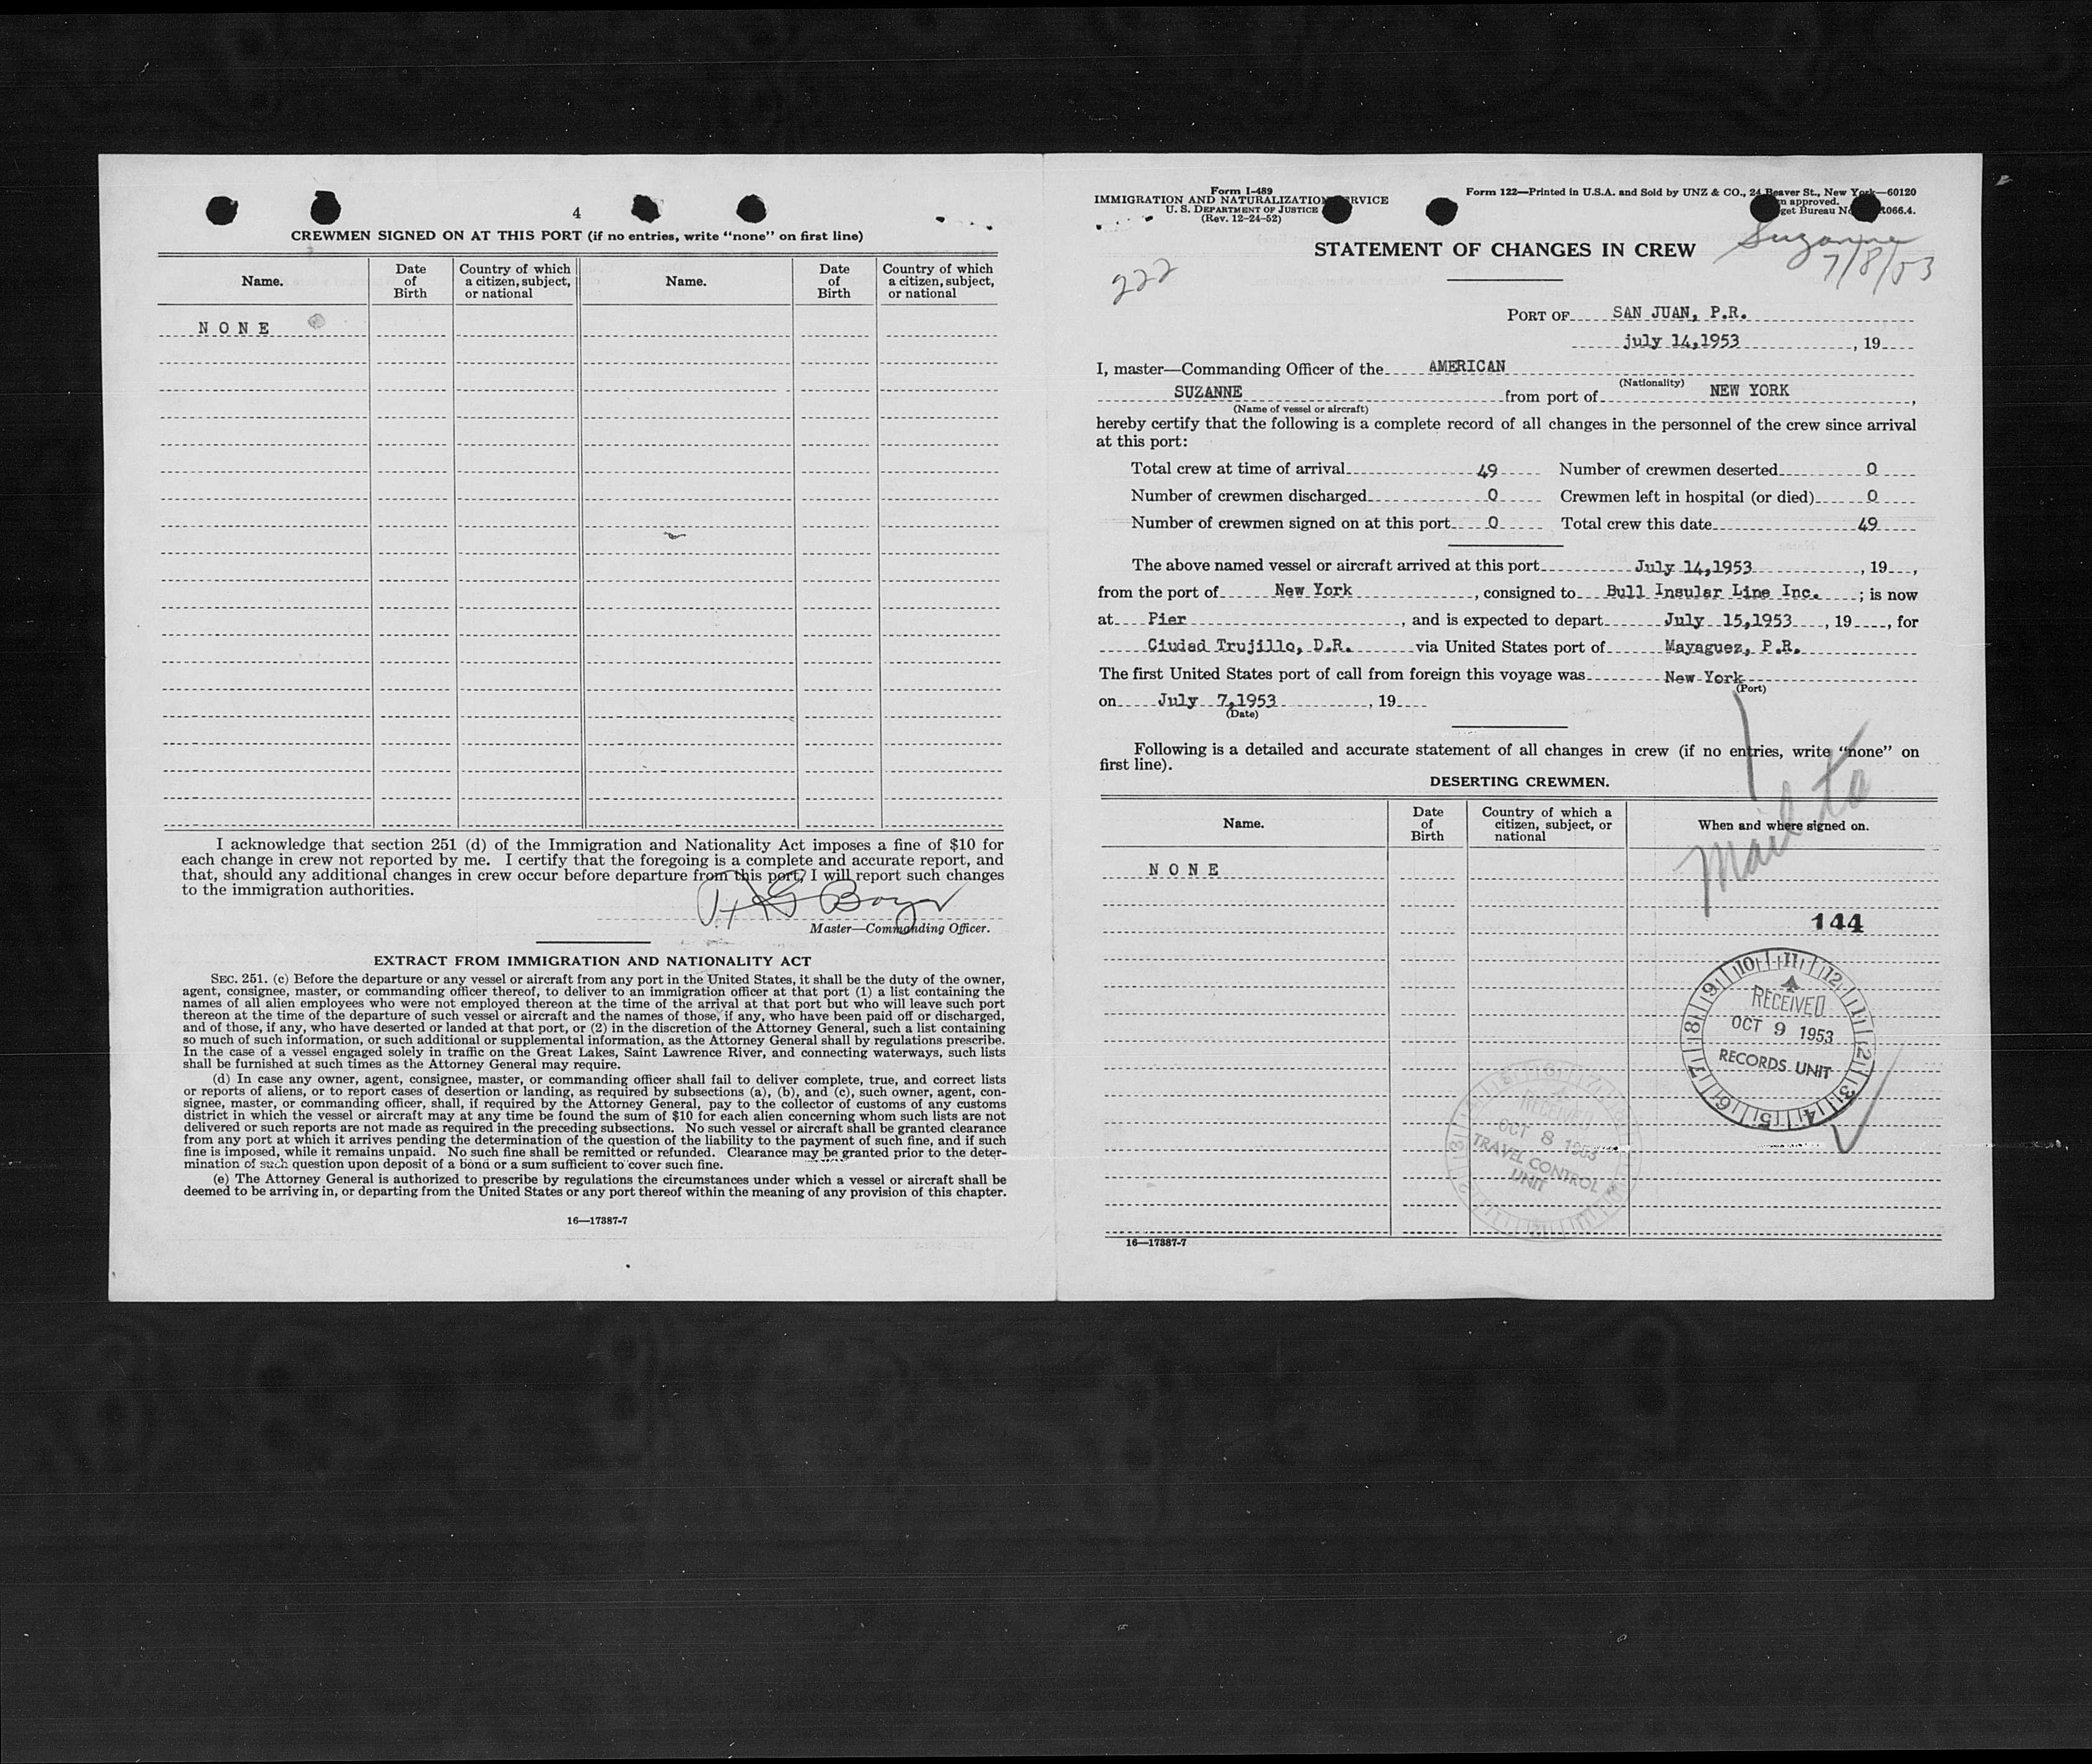 4
CREWMEN SIGNED ON AT THIS PORT (if no entries, write “none” on first line)
Name. Date of Birth Country of which a citizen, subject, or national Name. Date of Birth Country of which a citizen, subject, or national
NONE
I acknowledge that section 251 (d) of the Immigration and Nationality Act imposes a fine of $10 for
each change in crew not reported by me. I certify that the foregoing is a complete and accurate report, and
that, should any additional changes in crew occur before departure from this port, I will report such changes
to the immigration authorities.
Master—Commanding Officer.
EXTRACT FROM IMMIGRATION AND NATIONALITY ACT
SEC. 251. (c) Before the departure or any vessel or aircraft from any port in the United States, it shall be the duty of the owner,
agent, consignee, master, or commanding officer thereof, to deliver to an immigration officer at that port (1) a list containing the
names of all alien employees who were not employed thereon at the time of the arrival at that port but who will leave such port
thereon at the time of the departure of such vessel or aircraft and the names of those, if any, who have been paid off or discharged,
and of those, if any, who have deserted or landed at that port, or (2) in the discretion of the Attorney General, such a list containing
so much of such information, or such additional or supplemental information, as the Attorney General shall by regulations prescribe.
In the case of a vessel engaged solely in traffic on the Great Lakes, Saint Lawrence River, and connecting waterways, such lists
shall be furnished at such times as the Attorney General may require.
(d) In case any owner, agent, consignee, master, or commanding officer shall fail to deliver complete, true, and correct lists
or reports of aliens, or to report cases of desertion or landing, as required by subsections (a), (b), and (c), such owner, agent, con-
signee, master, or commanding officer, shall, if required by the Attorney General, pay to the collector of customs of any customs
district in which the vessel or aircraft may at any time be found the sum of $10 for each alien concerning whom such lists are not
delivered or such reports are not made as required in the preceding subsections. No such vessel or aircraft shall be granted clearance
from any port at which it arrives pending the determination of the question of the liability to the payment of such fine, and if such
fine is imposed, while it remains unpaid. No such fine shall be remitted or refunded. Clearance may be granted prior to the deter-
mination of such question upon deposit of a bond or a sum sufficient to cover such fine.
(e) The Attorney General is authorized to prescribe by regulations the circumstances under which a vessel or aircraft shall be
deemed to be arriving in, or departing from the United States or any port thereof within the meaning of any provision of this chapter.
16—17387-7
Form I-489
IMMIGRATION AND NATURALIZATION SERVICE
U. S. DEPARTMENT OF JUSTICE
(Rev. 12-24-52)
Form 122—Printed in U.S.A. and Sold by UNZ & CO., 24 Beaver St., New York—60120
approved.
066.4.
STATEMENT OF CHANGES IN CREW
Suzanne
7/8/53
222
PORT OF SAN JUAN, P.R.
july 14,1953, 19
I, master—Commanding Officer of the AMERICAN
(Nationality)
SUZANNE from port of NEW YORK,
(Name of vessel or aircraft)
hereby certify that the following is a complete record of all changes in the personnel of the crew since arrival
at this port:
Total crew at time of arrival 49 Number of crewmen deserted 0
Number of crewmen discharged 0 Crewmen left in hospital (or died) 0
Number of crewmen signed on at this port 0 Total crew this date 49
The above named vessel or aircraft arrived at this port July 14,1953, 19,
from the port of New York, consigned to Bull Insular Line Inc.; is now
at Pier, and is expected to depart July 15,1953, 19, for
Ciudad Trujillo, D.R. via United States port of Mayaguez, P.R.
The first United States port of call from foreign this voyage was New York
(Port)
on July 7,1953, 19
(Date)
Following is a detailed and accurate statement of all changes in crew (if no entries, write “none” on
first line).
DESERTING CREWMEN.
Name. Date of Birth Country of which a citizen, subject, or national When and where signed on.
Mail to
NONE
144
10 11 12 1 2 3 4 5 6 7 8 9
RECEIVED
OCT 9 1953
RECORDS UNIT
RECEIVED
OCT 8 1953
TRAVEL CONTROL
UNIT
16—17387-7